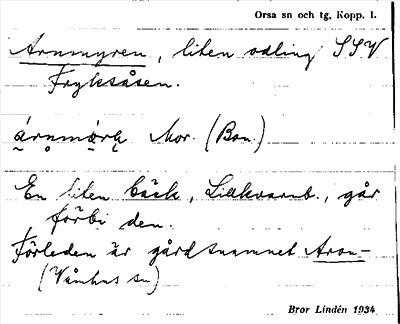 Orsa sn och tg, Kopp. l.
Arnmyren, liten odling SSV
Fryksåsen.
Mor. (Bon.)
En liten bäck, Lillkvarnb., går
förbi den.
Förleden är gårdsnamnet Aron-
(Våmhus sn)
Bror Lindén 1934